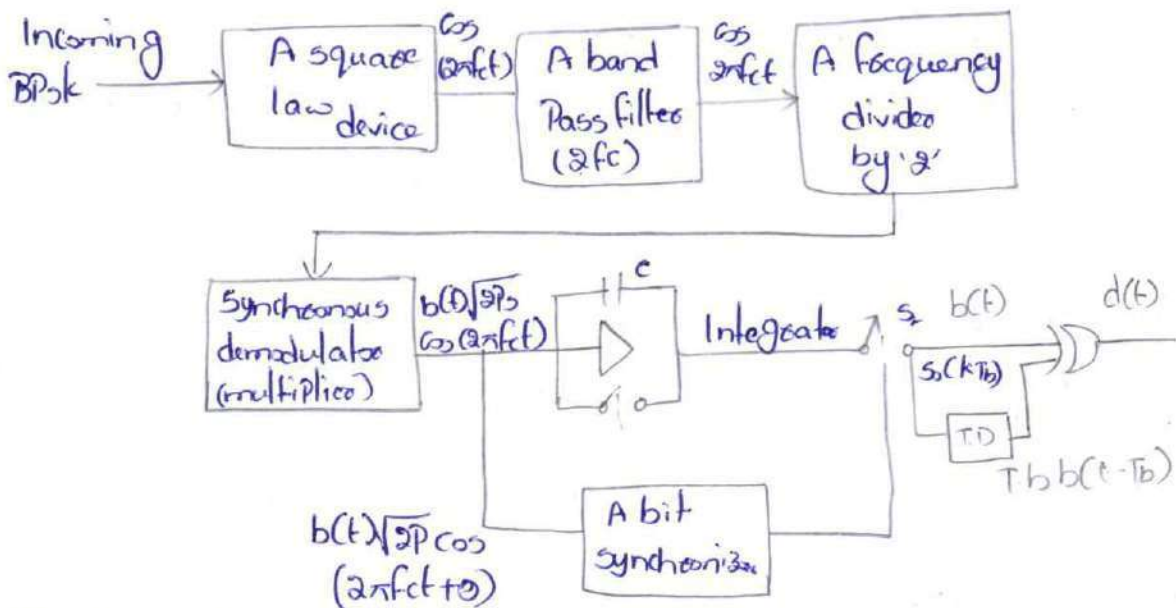 Incoming
BPsk
A square
law device
cos
(2πfct)
A band
Pass filter
(2fc)
cos
2πfct
A frequency
divider
by '2'
Synchronous
demodulator
(multiplier)
b(t)√2Ps
cos(2πfct)
c
Integrator
S2
b(t)
d(t)
So(kTb)
T.D
Tb b(t-Tb)
A bit
synchronizer
b(t)√2P cos
(2πfct+θ)